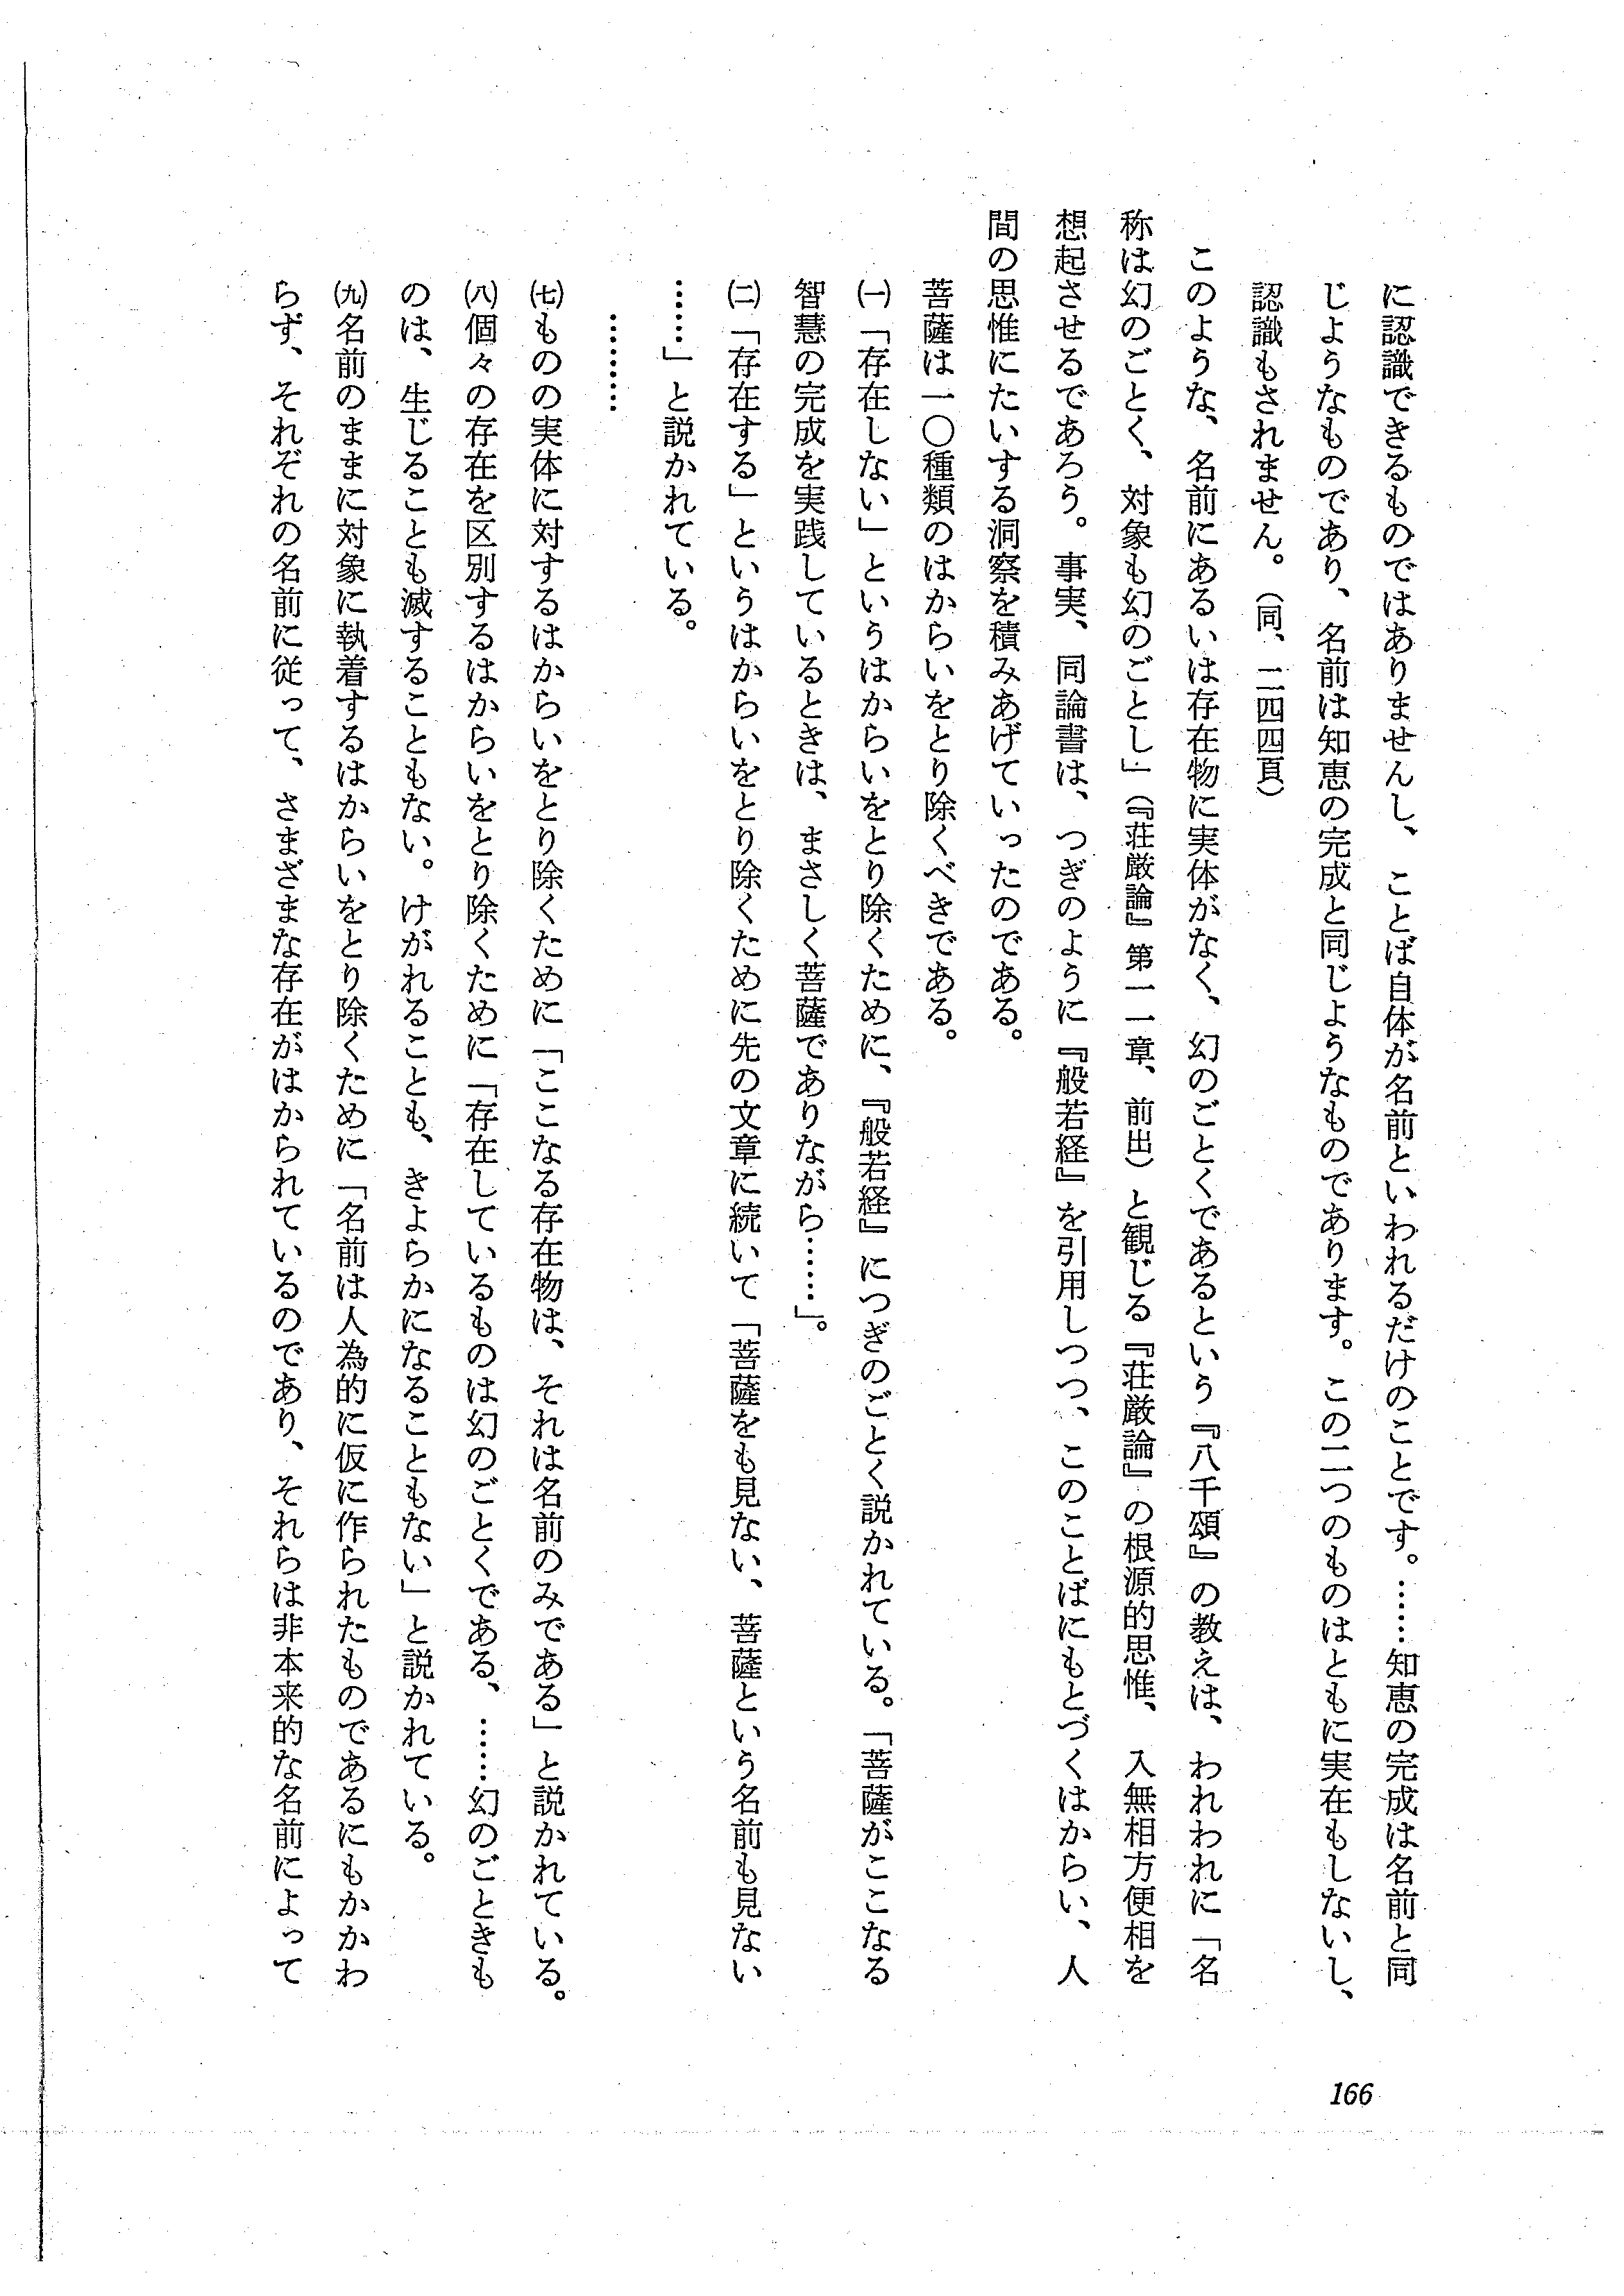 に認識できるものではありませんし、ことば自体が名前といわれるだけのことです。……知恵の完成は名前と同
じようなものであり、名前は知恵の完成と同じようなものであります。この二つのものはともに実在もしないし、
認識もされません。(同、二四四頁)
このような、名前にあるいは存在物に実体がなく、幻のごとくであるという『八千頌』の教えは、われわれに「名
称は幻のごとく、対象も幻のごとし」(『荘厳論』第一一章、前出)と観じる『荘厳論』の根源的思惟、入無相方便相を
想起させるであろう。事実、同論書は、つぎのように『般若経』を引用しつつ、このことばにもとづくはからい、人
間の思惟にたいする洞察を積みあげていったのである。
菩薩は一〇種類のはからいをとり除くべきである。
㈠「存在しない」というはからいをとり除くために、『般若経』につぎのごとく説かれている。「菩薩がここなる
智慧の完成を実践しているときは、まさしく菩薩でありながら……」。
㈡「存在する」というはからいをとり除くために先の文章に続いて「菩薩をも見ない、菩薩という名前も見ない
……」と説かれている。
………
㈦ものの実体に対するはからいをとり除くために「ここなる存在物は、それは名前のみである」と説かれている。
㈧個々の存在を区別するはからいをとり除くために「存在しているものは幻のごとくである、……幻のごときも
のは、生じることも滅することもない。けがれることも、きよらかになることもない」と説かれている。
㈨名前のままに対象に執着するはからいをとり除くために「名前は人為的に仮に作られたものであるにもかかわ
らず、それぞれの名前に従って、さまざまな存在がはかられているのであり、それらは非本来的な名前によって
166